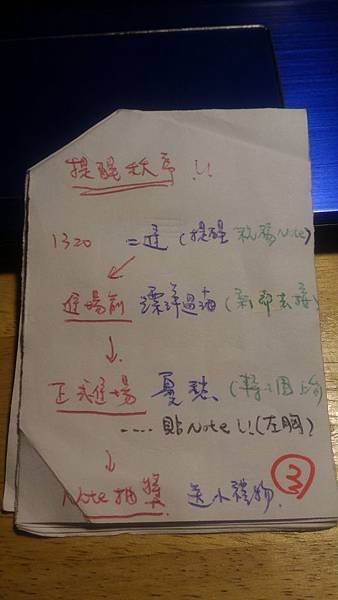 提醒秩序!!
1320 = 進 (提醒 祝福Note)
進場前 漂洋過海 (新郎去接)
正式進場 憂愁 (轉圈
.... 貼Note !!(左胸)
Note抽獎 送小禮物.
3